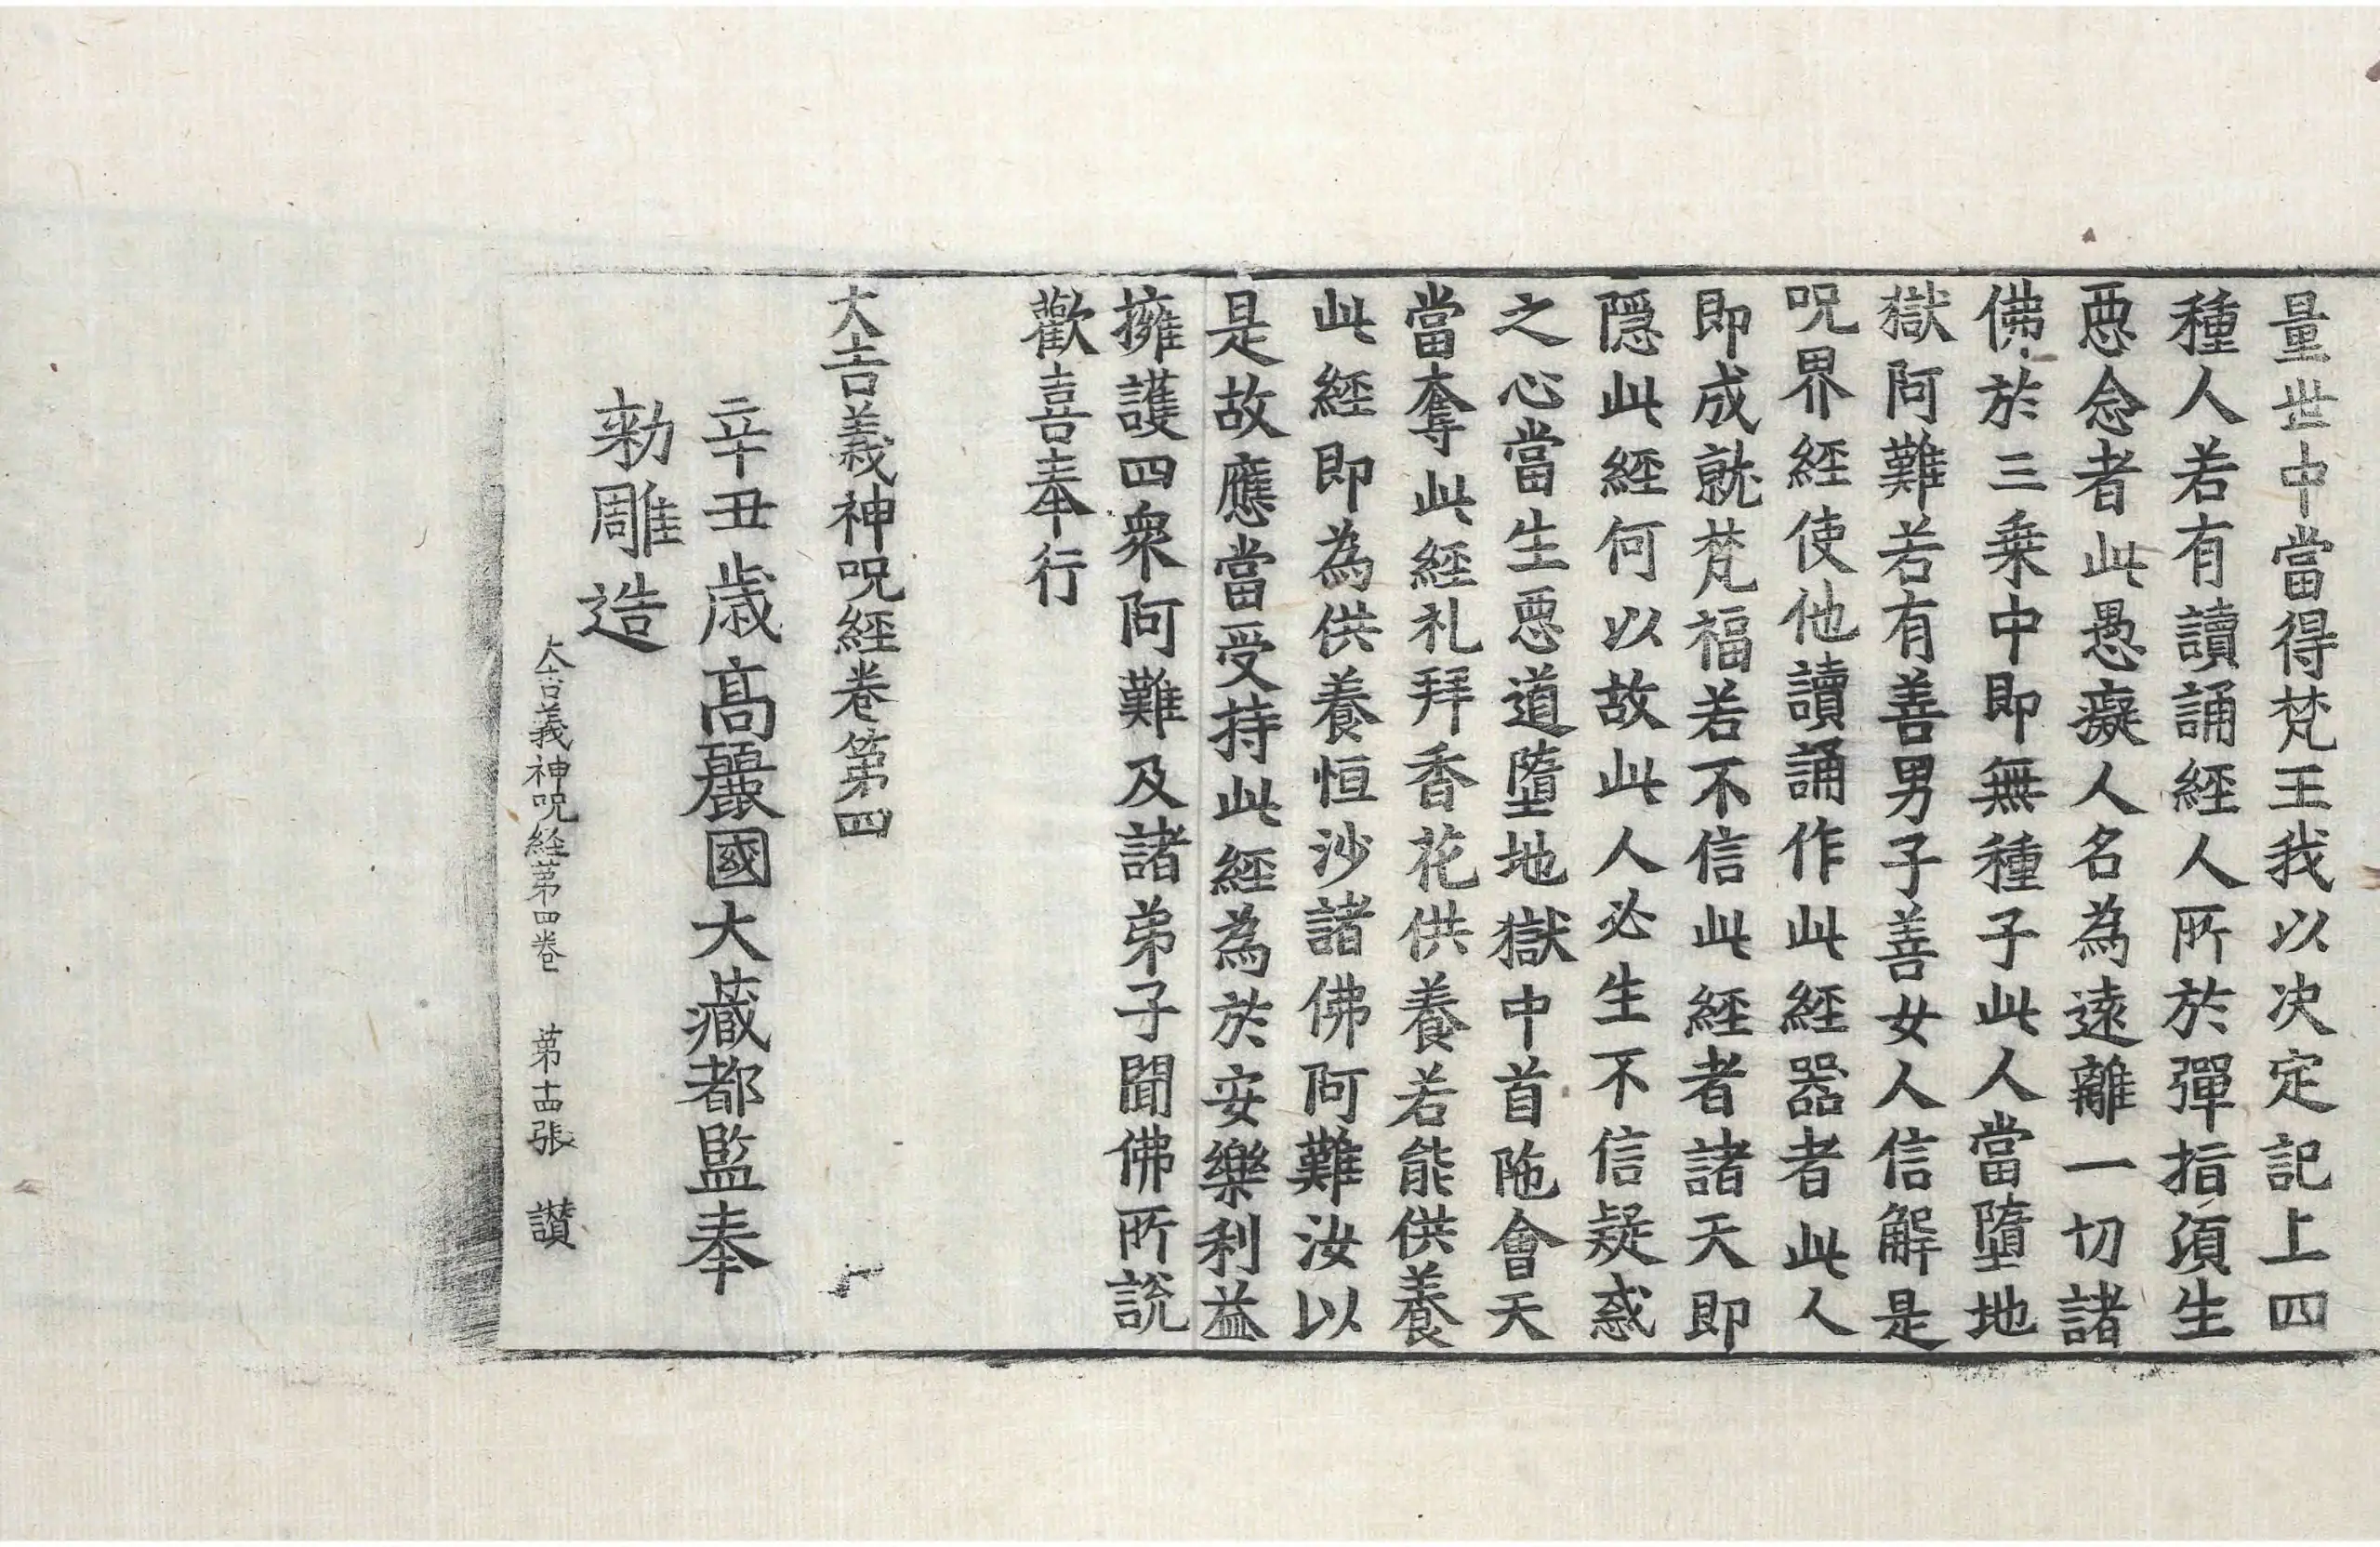 量世中當得梵王我以決定記上四
種人若有讀誦經人所於彈指須生
惡念者此愚癡人名為遠離一切諸
佛於三乘中即無種子此人當墮地
獄阿難若有善男子善女人信解是
呪界經使他讀誦作此經器者此人
即成就梵福若不信此經者諸天即
隱此經何以故此人必生不信疑惑
之心當生惡道墮地獄中首陁會天
當奪此經礼拜香花供養若能供養
此經即為供養恒沙諸佛阿難汝以
是故應當受持此經為於安樂利益
擁護四衆阿難及諸弟子聞佛所說
歡喜奉行
大吉義神呪經卷第四
辛丑歲高麗國大藏都監奉
勑雕造
大吉義神呪経苐四卷 苐十四張 讃